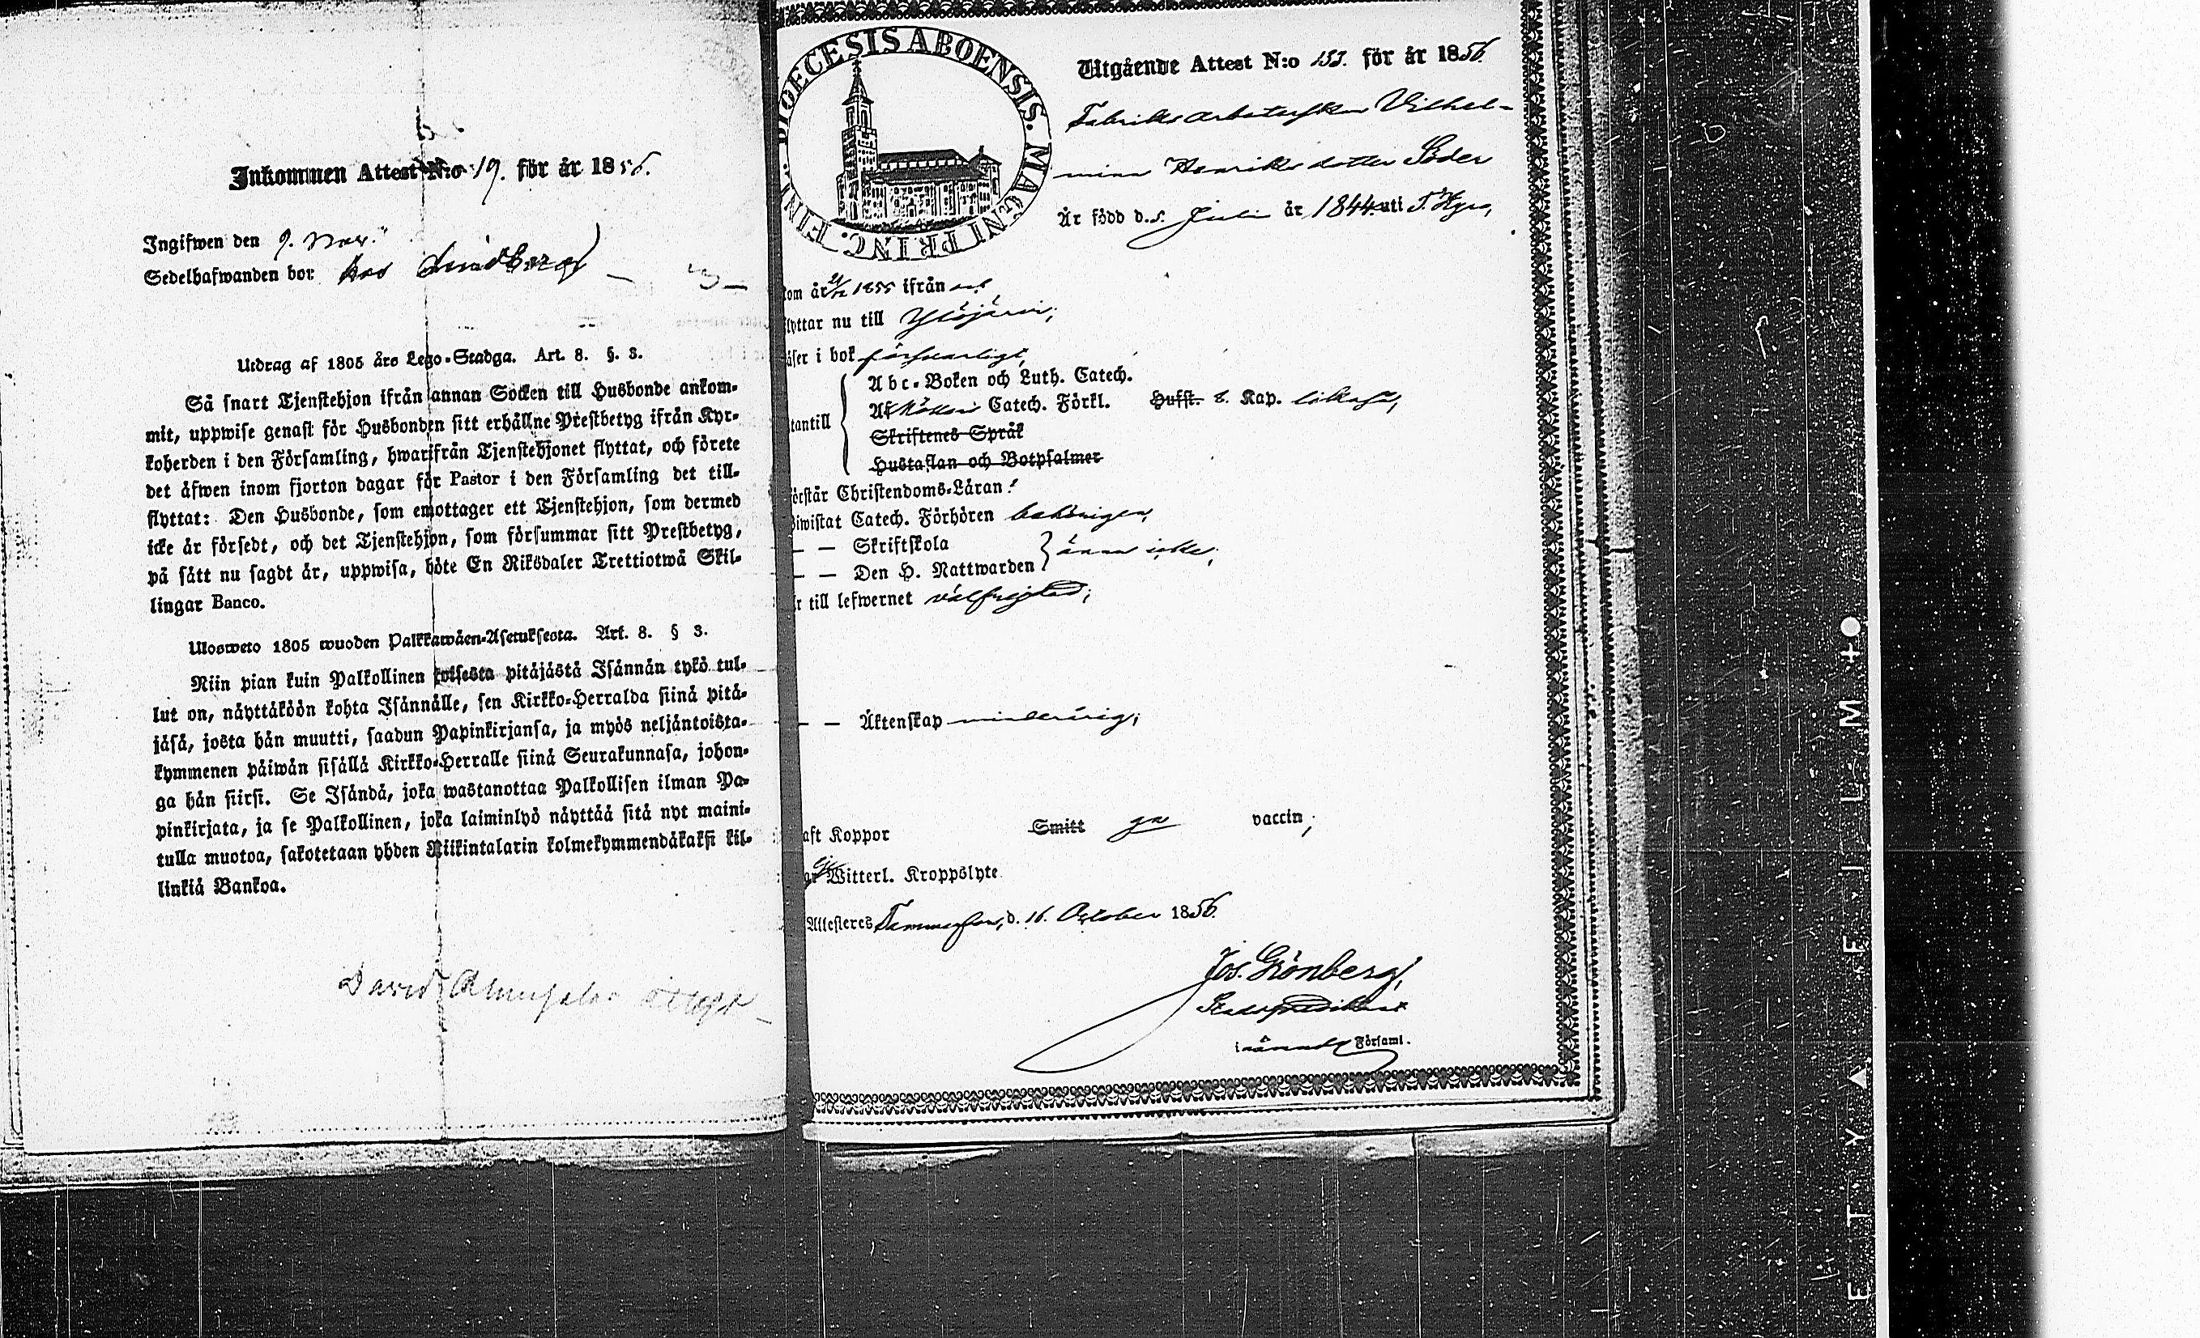 Inkommen Attest N:o 19. för år 1856.
Ingifwen den 9. Nov.
Sedelhafwanden bor hos Lindberg
Utdrag af 1805 års Lego-Stadga. Art. 8. §. 3.
Så snart Tjenstehjon ifrån annan Socken till Husbonde ankom-
mit, uppwise genast för Husbonden sitt erhållne Prestbetyg ifrån Kyr-
koherden i den Församling, hwarifrån Tjenstehjonet flyttat, och förete
det äfwen inom fjorton dagar för Pastor i den Församling det till-
flyttat: Den Husbonde, som emottager ett Tjenstehjon, som dermed
icke är försedt, och det Tjenstehjon, som försummar sitt Prestbetyg,
på sätt nu sagdt är, uppwisa, böte En Riksdaler Trettiotwå Skil-
lingar Banco.
Ulosweto 1805 wuoden Palkkawäen-Asetuksesta. Art. 8. § 3.
Niin pian kuin Palkollinen toisesta pitäjästä Isännän tykö tul-
lut on, näyttäköön kohta Isännälle, sen Kirkko-Herralda siinä pitä-
jäsä, josta hän muutti, saadun Papinkirjansa, ja myös neljäntoista-
kymmenen päiwän sisällä Kirkko-Herralle siinä Seurakunnasa, johon-
ga hän siirsi. Se Isändä, joka wastanottaa Palkollisen ilman Pa-
pinkirjata, ja se Palkollinen, joka laiminlyö näyttää sitä nyt maini-
tulla muotoa, sakotetaan yhden Riikintalarin kolmekymmendäkaksi kil-
linkiä Bankoa.
David
DIOECESIS ABOENSIS. MAGNI PRINC. FINL.
Utgående Attest N:o 153. för år 1856.
Fabriks arbeterskan Vilhel-
mina Henriksdotter Söder
Är född d. 5. Juli år 1844 uti T. Kyro,
kom år 1855 ifrån
flyttar nu till Ylöjärvi;
läser i bok försvarligt,
utantill
Abc-Boken och Luth. Catech.
Catech. Förkl. Hufst. 8. Kap. likaså,
Skriftenes Språk
Hustaflan och Botpsalmer
förstår Christendoms-Läran:
Biwistat Catech. Förhören behörigen,
— — Skriftskola
— — Den H. Nattwarden } ännu icke;
är till lefwernet välfrejdad;
— — Äktenskap minderårig;
haft Koppor Smitt ja vaccin;
har ej Witterl. Kroppslyte
Attesteres Tammerfors, d. 16. October 1856.
Jos. Grönberg,
Stadspredikant
i nämnde Församl.
ETY ▲ FILM +●